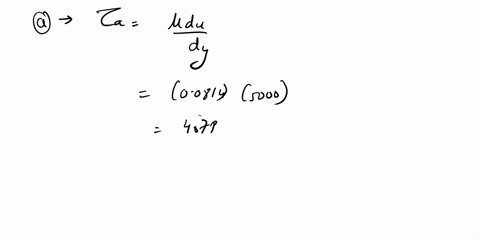 ⓐ → τa = μdu/dy
= (0.0814) (5000)
=